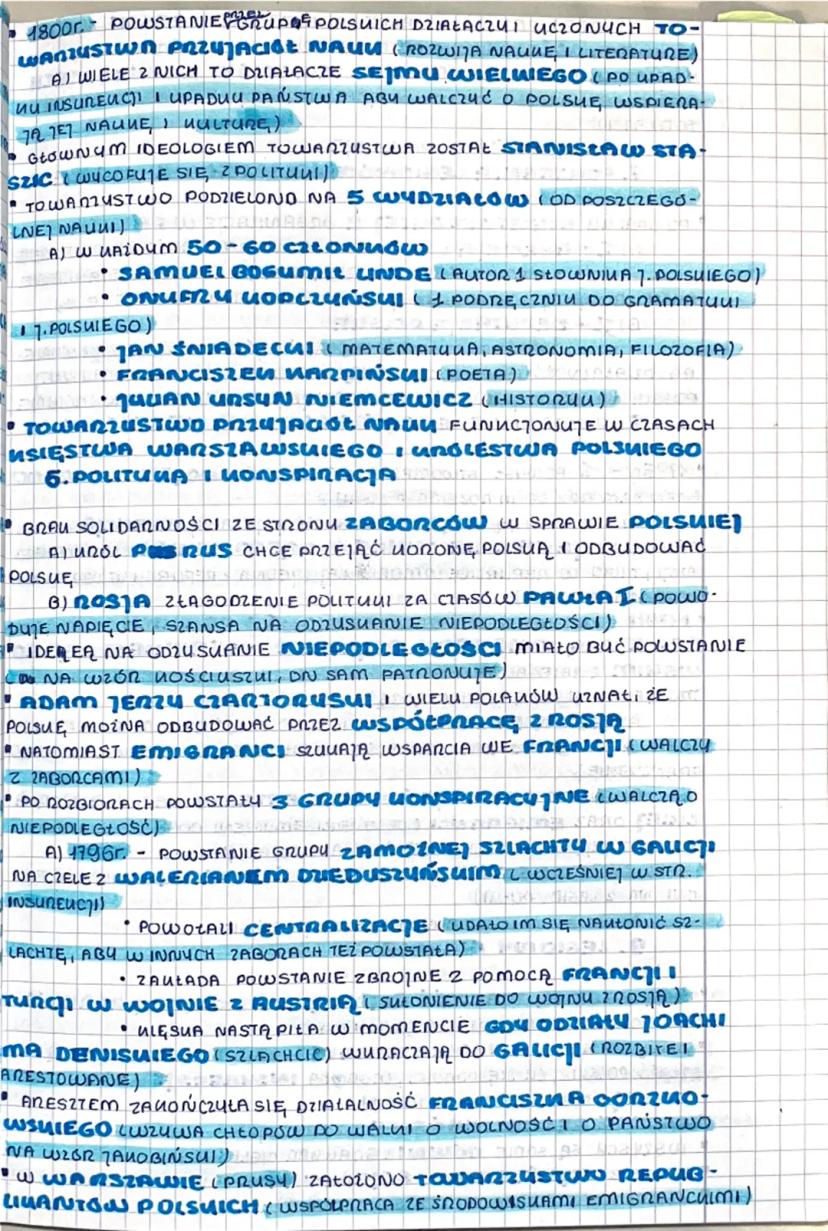 • 1800r. - POWSTANIE PRZEZ GRUPĘ POLSKICH DZIAŁACZY I UCZONYCH TO-
WARZYSTWA PRZYJACIÓŁ NAUK (ROZWIJA NAUKĘ I LITERATURĘ)
A) WIELE Z NICH TO DZIAŁACZE SEJMU WIELKIEGO (PO UPAD-
KU INSUREKCJI I UPADKU PAŃSTWA ABY WALCZYĆ O POLSKĘ WSPIERA-
JĄ JEJ NAUKĘ I KULTURĘ)
• GŁÓWNYM IDEOLOGIEM TOWARZYSTWA ZOSTAŁ STANISŁAW STA-
SZIC (WYCOFUJE SIĘ Z POLITYKI)
• TOWARZYSTWO PODZIELONO NA 5 WYDZIAŁÓW (OD POSZCZEGÓ-
LNEJ NAUKI)
A) W KAŻDYM 50-60 CZŁONKÓW
• SAMUEL BOGUMIŁ LINDE (AUTOR 1 SŁOWNIKA J. POLSKIEGO)
• ONUFRY KOPCZYŃSKI (1 PODRĘCZNIK DO GRAMATYKI
I J. POLSKIEGO)
• JAN ŚNIADECKI (MATEMATYKA, ASTRONOMIA, FILOZOFIA)
• FRANCISZEK KARPIŃSKI (POETA)
• JULIAN URSYN NIEMCEWICZ (HISTORYK)
• TOWARZYSTWO PRZYJACIÓŁ NAUK FUNKCJONUJE W CZASACH
KSIĘSTWA WARSZAWSKIEGO I KRÓLESTWA POLSKIEGO
6. POLITYKA I KONSPIRACJA
• BRAK SOLIDARNOŚCI ZE STRONY ZABORCÓW W SPRAWIE POLSKIEJ
A) KRÓL PRUS CHCE PRZEJĄĆ KORONĘ POLSKĄ I ODBUDOWAĆ
POLSKĘ
B) ROSJA ZŁAGODZENIE POLITYKI ZA CZASÓW PAWŁA I (POWO-
DUJE NAPIĘCIE, SZANSA NA ODZYSKANIE NIEPODLEGŁOŚCI)
• IDEĄ NA ODZYSKANIE NIEPODLEGŁOŚCI MIAŁO BYĆ POWSTANIE
(NA WZÓR KOŚCIUSZKI, ON SAM PATRONUJE)
• ADAM JERZY CZARTORYSKI I WIELU POLAKÓW UZNALI ŻE
POLSKĘ MOŻNA ODBUDOWAĆ PRZEZ WSPÓŁPRACĘ Z ROSJĄ
• NATOMIAST EMIGRANCI SZUKAJĄ WSPARCIA WE FRANCJI (WALCZY
Z ZABORCAMI)
• PO ROZBIORACH POWSTAŁY 3 GRUPY KONSPIRACYJNE (WALCZĄ O
NIEPODLEGŁOŚĆ)
A) 1796r. - POWSTANIE GRUPY ZAMOŻNEJ SZLACHTY W GALICJI
NA CZELE Z WALERIANEM DZIEDUSZYŃSKIM (WCZEŚNIEJ W STR.
INSUREKCJI)
• POWOŁALI CENTRALIZACJE (UDAŁO IM SIĘ NAKŁONIĆ SZ-
LACHTĘ, ABY W INNYCH ZABORACH TEŻ POWSTAŁA)
• ZAKŁADA POWSTANIE ZBROJNE Z POMOCĄ FRANCJI I
TURCJI W WOJNIE Z AUSTRIĄ (SKŁONIENIE DO WOJNY Z ROSJĄ)
• KLĘSKA NASTĄPIŁA W MOMENCIE GDY ODZIAŁY JOACHI
MA DENISKIEGO (SZLACHCIC) WKRACZAJĄ DO GALICJI (ROZBITE I
ARESTOWANE)
• ARESZTEM ZAKOŃCZYŁA SIĘ DZIAŁALNOŚĆ FRANCISZKA GORZKO-
WSKIEGO (WZYWA CHŁOPÓW DO WALKI O WOLNOŚĆ I O PAŃSTWO
NA WZÓR JAKOBIŃSKI)
• W WARSZAWIE (PRUSY) ZAŁOŻONO TOWARZYSTWO REPUB-
LIKANTÓW POLSKICH (WSPÓŁPRACA ZE ŚRODOWISKAMI EMIGRANCKIMI)